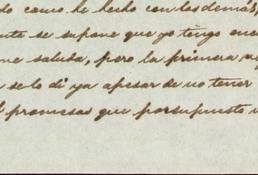 do como he hecho con los demás,
nte se supone que yo tengo
me saluda, pero la primera
se lo di ya apesar de no tener
promesas que por supuesto